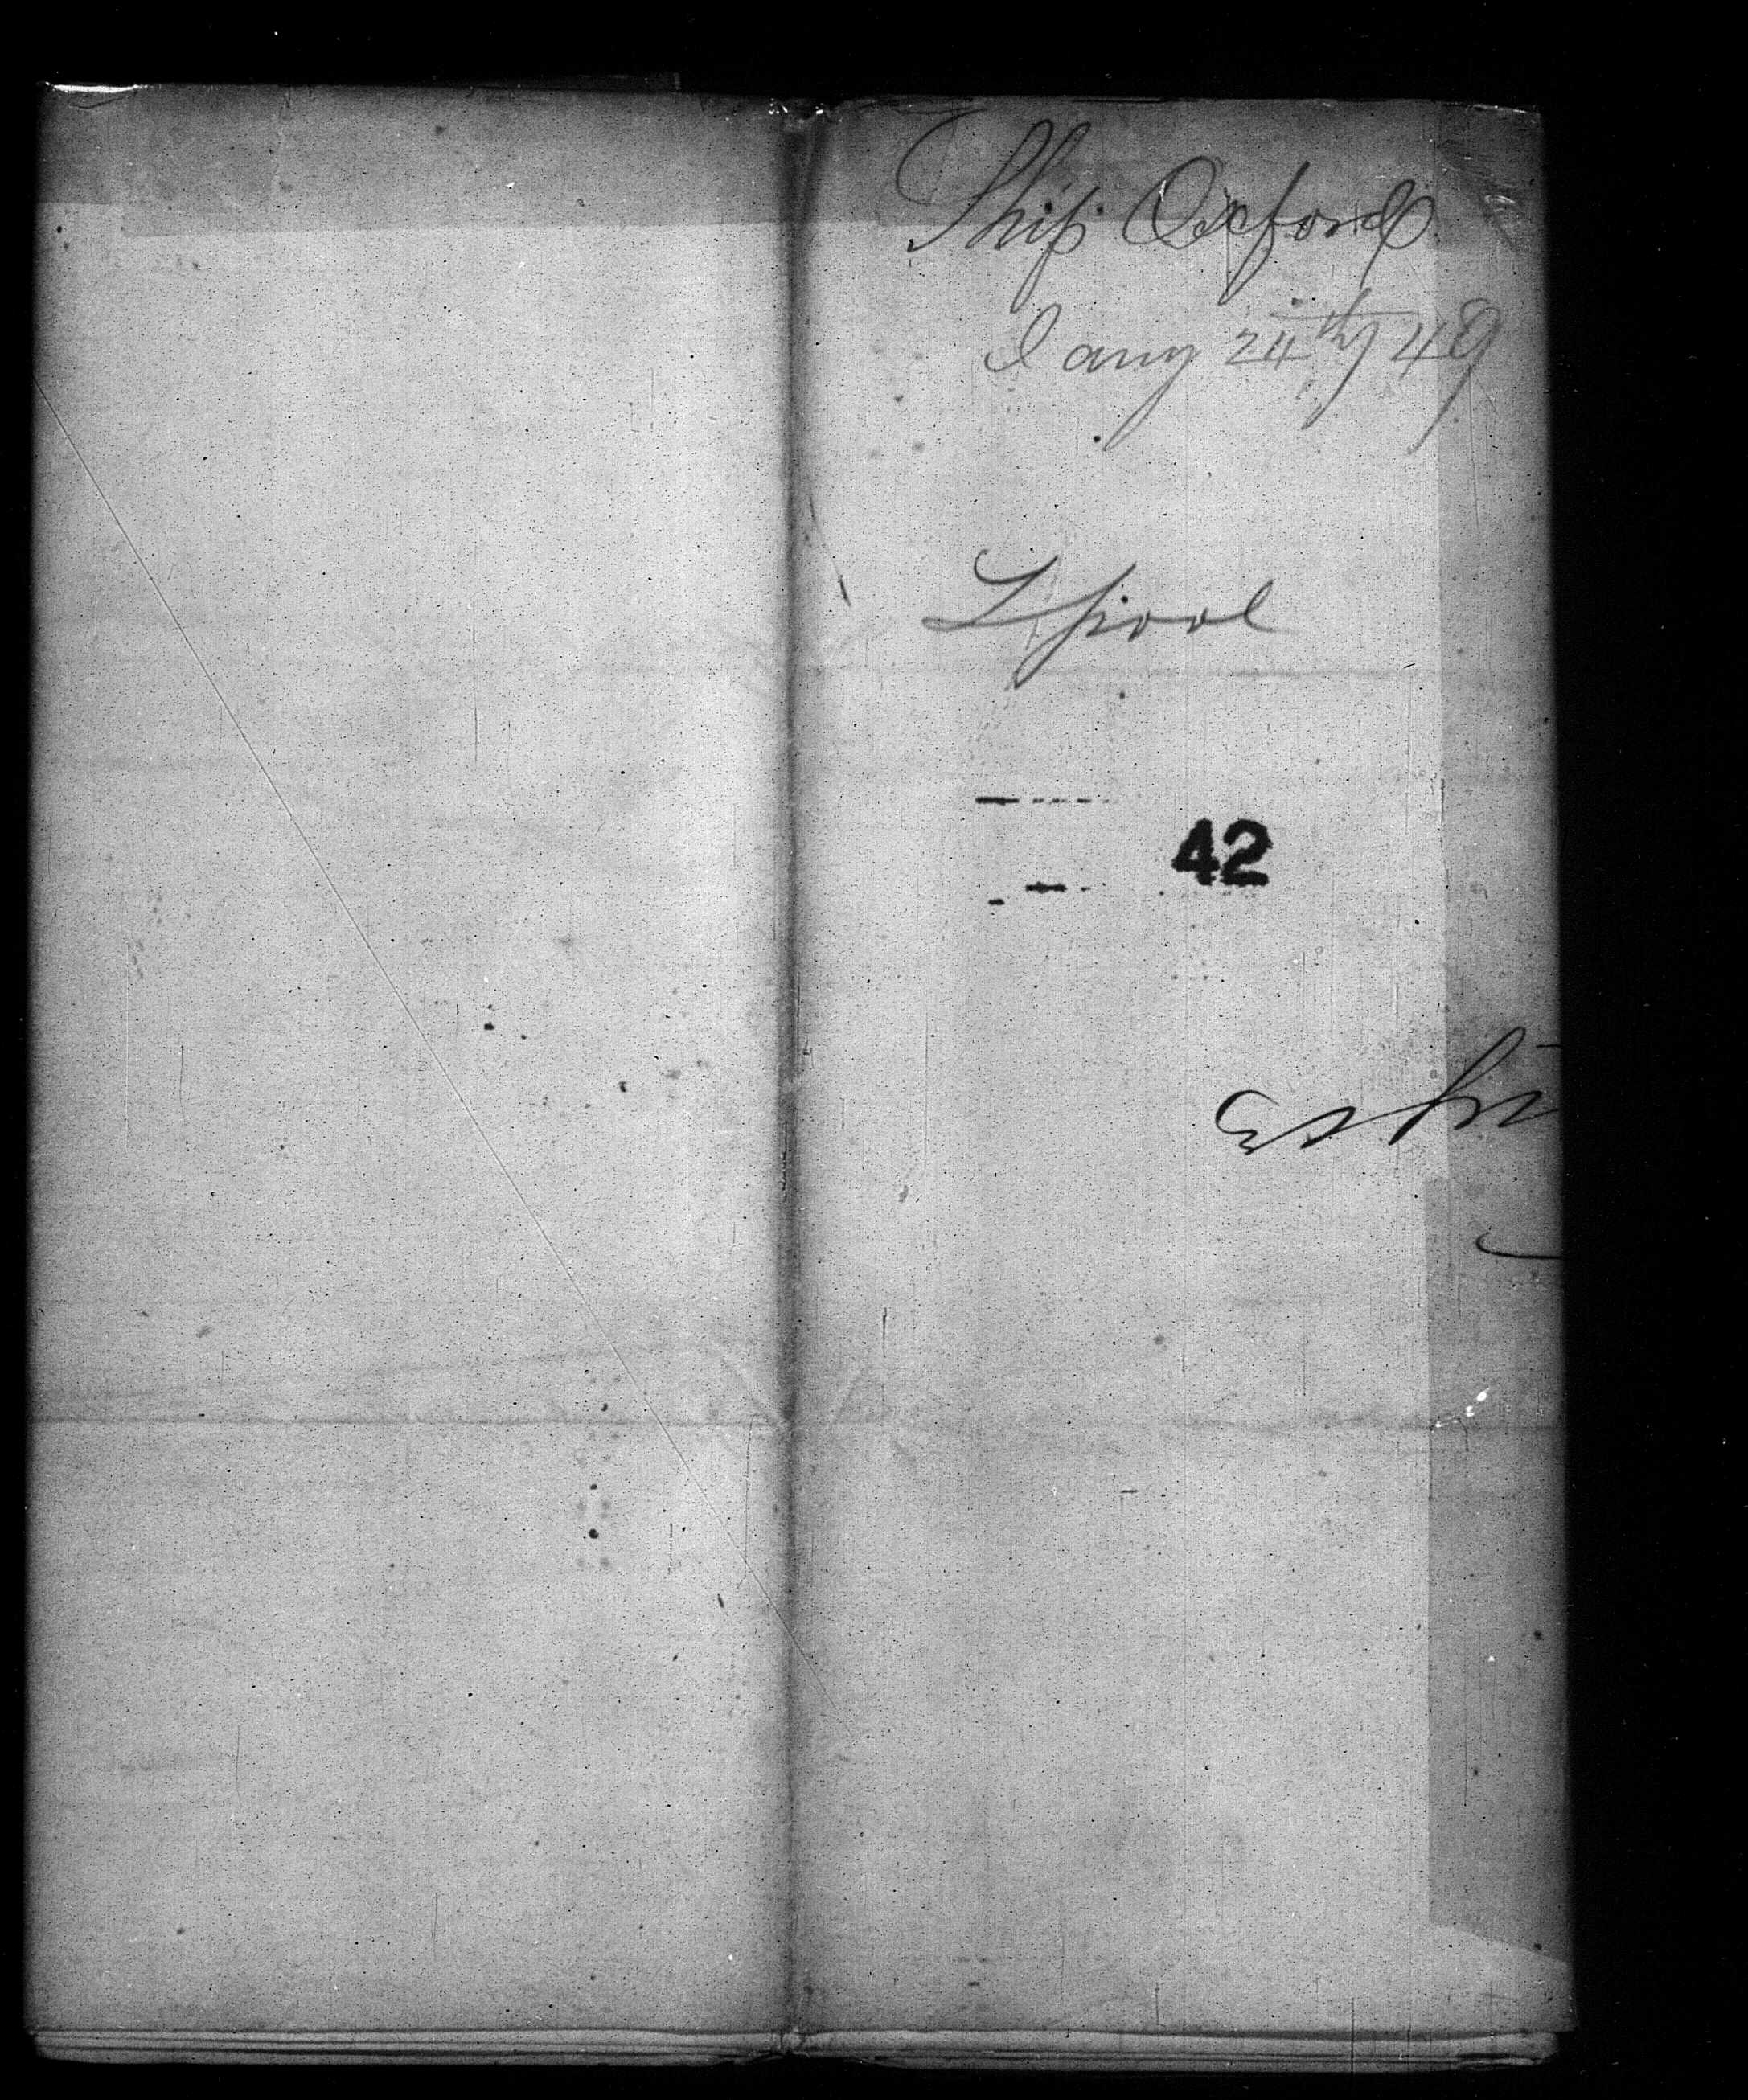 Ship Oxford
Jany 24th 49
Lpool
42